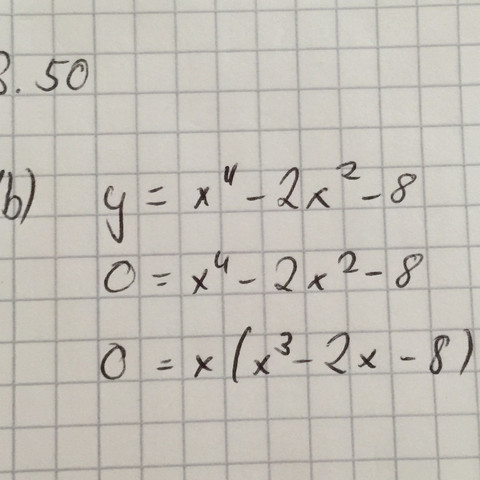 3.50
b) y = x⁴ - 2x² - 8
0 = x⁴ - 2x² - 8
0 = x(x³ - 2x - 8)